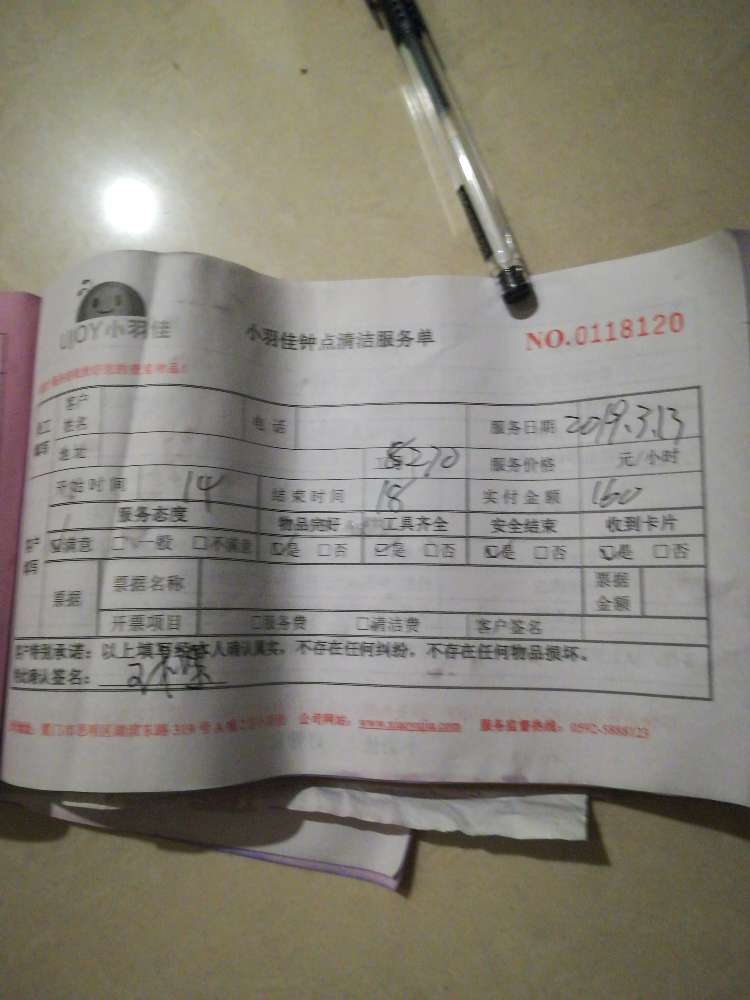 UJOY小羽佳
小羽佳钟点清洁服务单
NO.0118120
客户姓名 电话 服务日期 2019.3.13
地址 工号 8270 服务价格 元/小时
开始时间 14 结束时间 18 实付金额 160
服务态度 物品完好 工具齐全 安全结束 收到卡片
客户填写 ☑满意 □一般 □不满意 ☑是 □否 ☑是 □否 ☑是 □否 ☑是 □否
票据 票据名称 票据金额
开票项目 □服务费 □清洁费 客户签名
客户特别承诺：以上填写经本人确认属实，不存在任何纠纷，不存在任何物品损坏。
特此确认签名：
厦门市思明区湖滨东路319号A幢2 公司网站：www.xiaoyujia.com 服务监督热线：0592-5888123